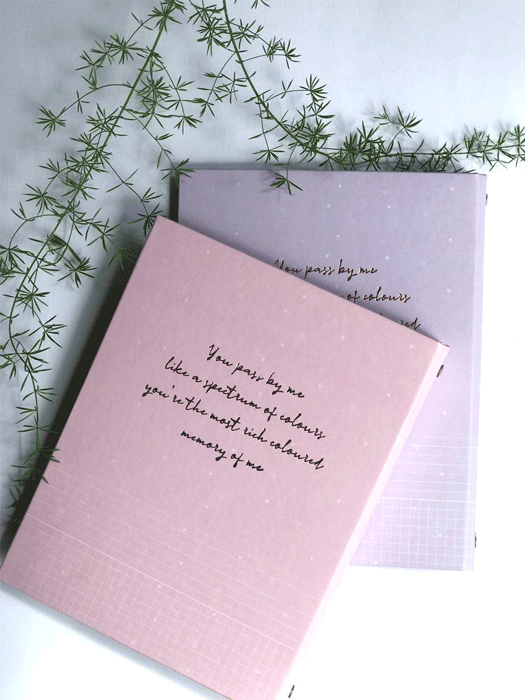 You pass by me
like a spectrum of colours
you're the most rich coloured
memory of me
You pass by me
of colours